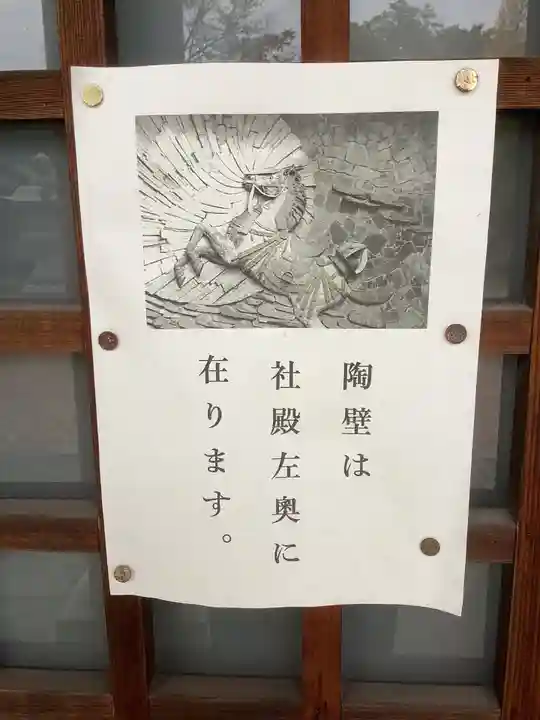 陶壁は
社殿左奥に
在ります。